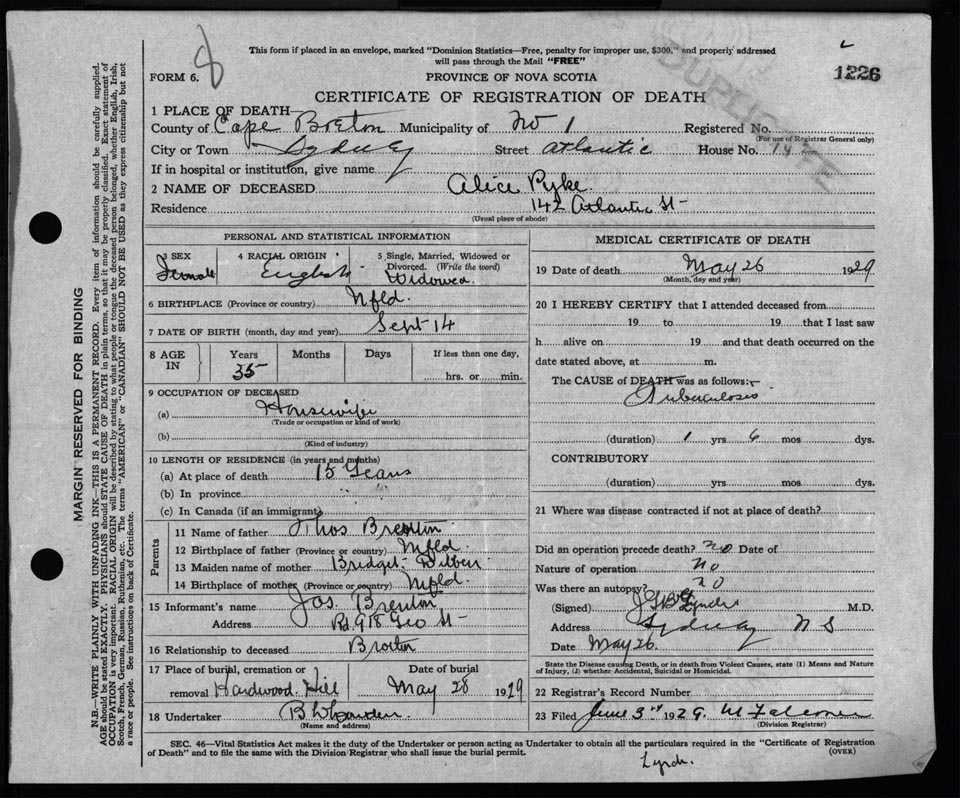 8
This form if placed in an envelope, marked "Dominion Statistics—Free, penalty for improper use, $300," and properly addressed
will pass through the Mail "FREE"
DUPLICATE
1226
FORM 6.
PROVINCE OF NOVA SCOTIA
CERTIFICATE OF REGISTRATION OF DEATH
1 PLACE OF DEATH
County of Cape Breton Municipality of No 1 Registered No.
(For use of Registrar General only)
City or Town Sydney Street Atlantic House No. 14
If in hospital or institution, give name
2 NAME OF DECEASED Alice Pyke.
Residence 142 Atlantic St-
(Usual place of abode)
PERSONAL AND STATISTICAL INFORMATION
3 SEX Female
4 RACIAL ORIGIN English
5 Single, Married, Widowed or Divorced. (Write the word) Widowed.
6 BIRTHPLACE (Province or country) Nfld.
7 DATE OF BIRTH (month, day and year) Sept 14
8 AGE IN Years Months Days If less than one day,
35 hrs. or min.
9 OCCUPATION OF DECEASED
(a) Housewife
(Trade or occupation or kind of work)
(b)
(Kind of industry)
10 LENGTH OF RESIDENCE (in years and months)
(a) At place of death 15 Years
(b) In province " "
(c) In Canada (if an immigrant)
Parents
11 Name of father Thos Brenton
12 Birthplace of father (Province or country) Nfld.
13 Maiden name of mother Bridget
14 Birthplace of mother (Province or country) Nfld.
15 Informant's name Jos. Brenton
Address Rd 918 Geo St-
16 Relationship to deceased Brother
17 Place of burial, cremation or Date of burial
removal Hardwood Hill May 28 1929
18 Undertaker
(Name and address)
MEDICAL CERTIFICATE OF DEATH
19 Date of death May 26 1929
(Month, day and year)
20 I HEREBY CERTIFY that I attended deceased from
19 to 19 that I last saw
h alive on 19 and that death occurred on the
date stated above, at m.
The CAUSE of DEATH was as follows:
Tuberculosis
(duration) 1 yrs 6 mos dys.
CONTRIBUTORY
(duration) yrs. mos. dys.
21 Where was disease contracted if not at place of death?
Did an operation precede death? no Date of
Nature of operation no
Was there an autopsy? no
(Signed) Lynch M.D.
Address Sydney N S
Date May 26.
State the Disease causing Death, or in death from Violent Causes, state (1) Means and Nature
of Injury, (2) whether Accidental, Suicidal or Homicidal.
22 Registrar's Record Number
23 Filed June 3rd 1929. M Falconer
(Division Registrar)
SEC. 46—Vital Statistics Act makes it the duty of the Undertaker or person acting as Undertaker to obtain all the particulars required in the "Certificate of Registration
of Death" and to file the same with the Division Registrar who shall issue the burial permit. (OVER)
Lynch.
MARGIN RESERVED FOR BINDING
N.B.—WRITE PLAINLY WITH UNFADING INK—THIS IS A PERMANENT RECORD. Every item of information should be carefully supplied.
AGE should be stated EXACTLY. PHYSICIANS should STATE CAUSE OF DEATH in plain terms, so that it may be properly classified. Exact statement of
OCCUPATION is very important. RACIAL ORIGIN will be described by stating to what people or tongue the deceased person belonged, whether English, Irish,
Scotch, French, German, Russian, Ruthenian, etc. The terms "AMERICAN" or "CANADIAN" SHOULD NOT BE USED as they express citizenship but not
a race or people. See instructions on back of Certificate.